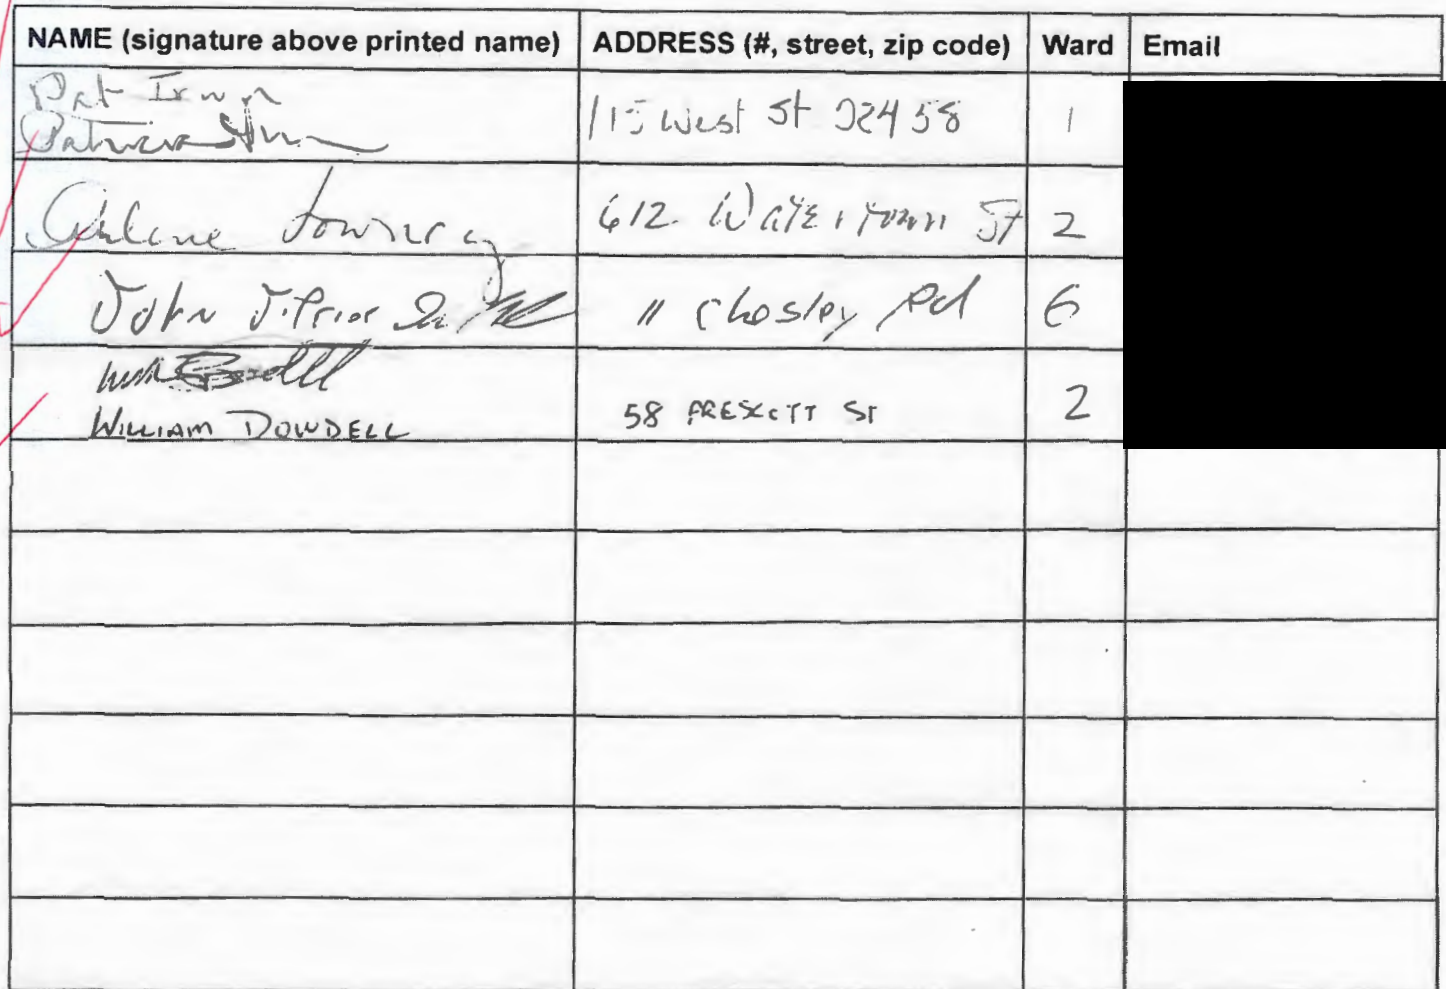 NAME (signature above printed name) ADDRESS (#, street, zip code) Ward Email
Pat Irwin
Patricia 115 West St 02458 1
612 Watertown St 2
John J. Prior 11 Chesley Rd 6
WILLIAM DOWDELL 58 PRESCOTT ST 2